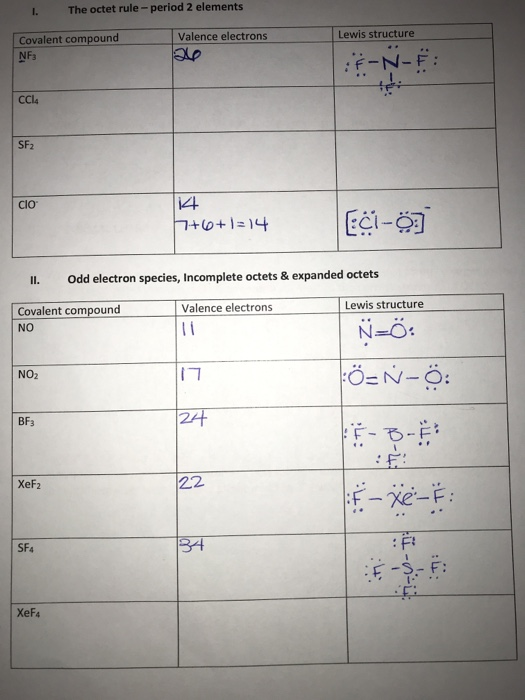 I. The octet rule – period 2 elements
Covalent compound Valence electrons Lewis structure
NF₃ 26 :F-N-F:
F
CCl₄
SF₂
ClO⁻ 14
7+6+1=14 [:Cl-O:]⁻
II. Odd electron species, Incomplete octets & expanded octets
Covalent compound Valence electrons Lewis structure
NO 11 N=O:
NO₂ 17 :O=N-O:
BF₃ 24 :F-B-F:
:F:
XeF₂ 22 :F-Xe-F:
SF₄ 34 :F:
:F-S-F:
:F:
XeF₄